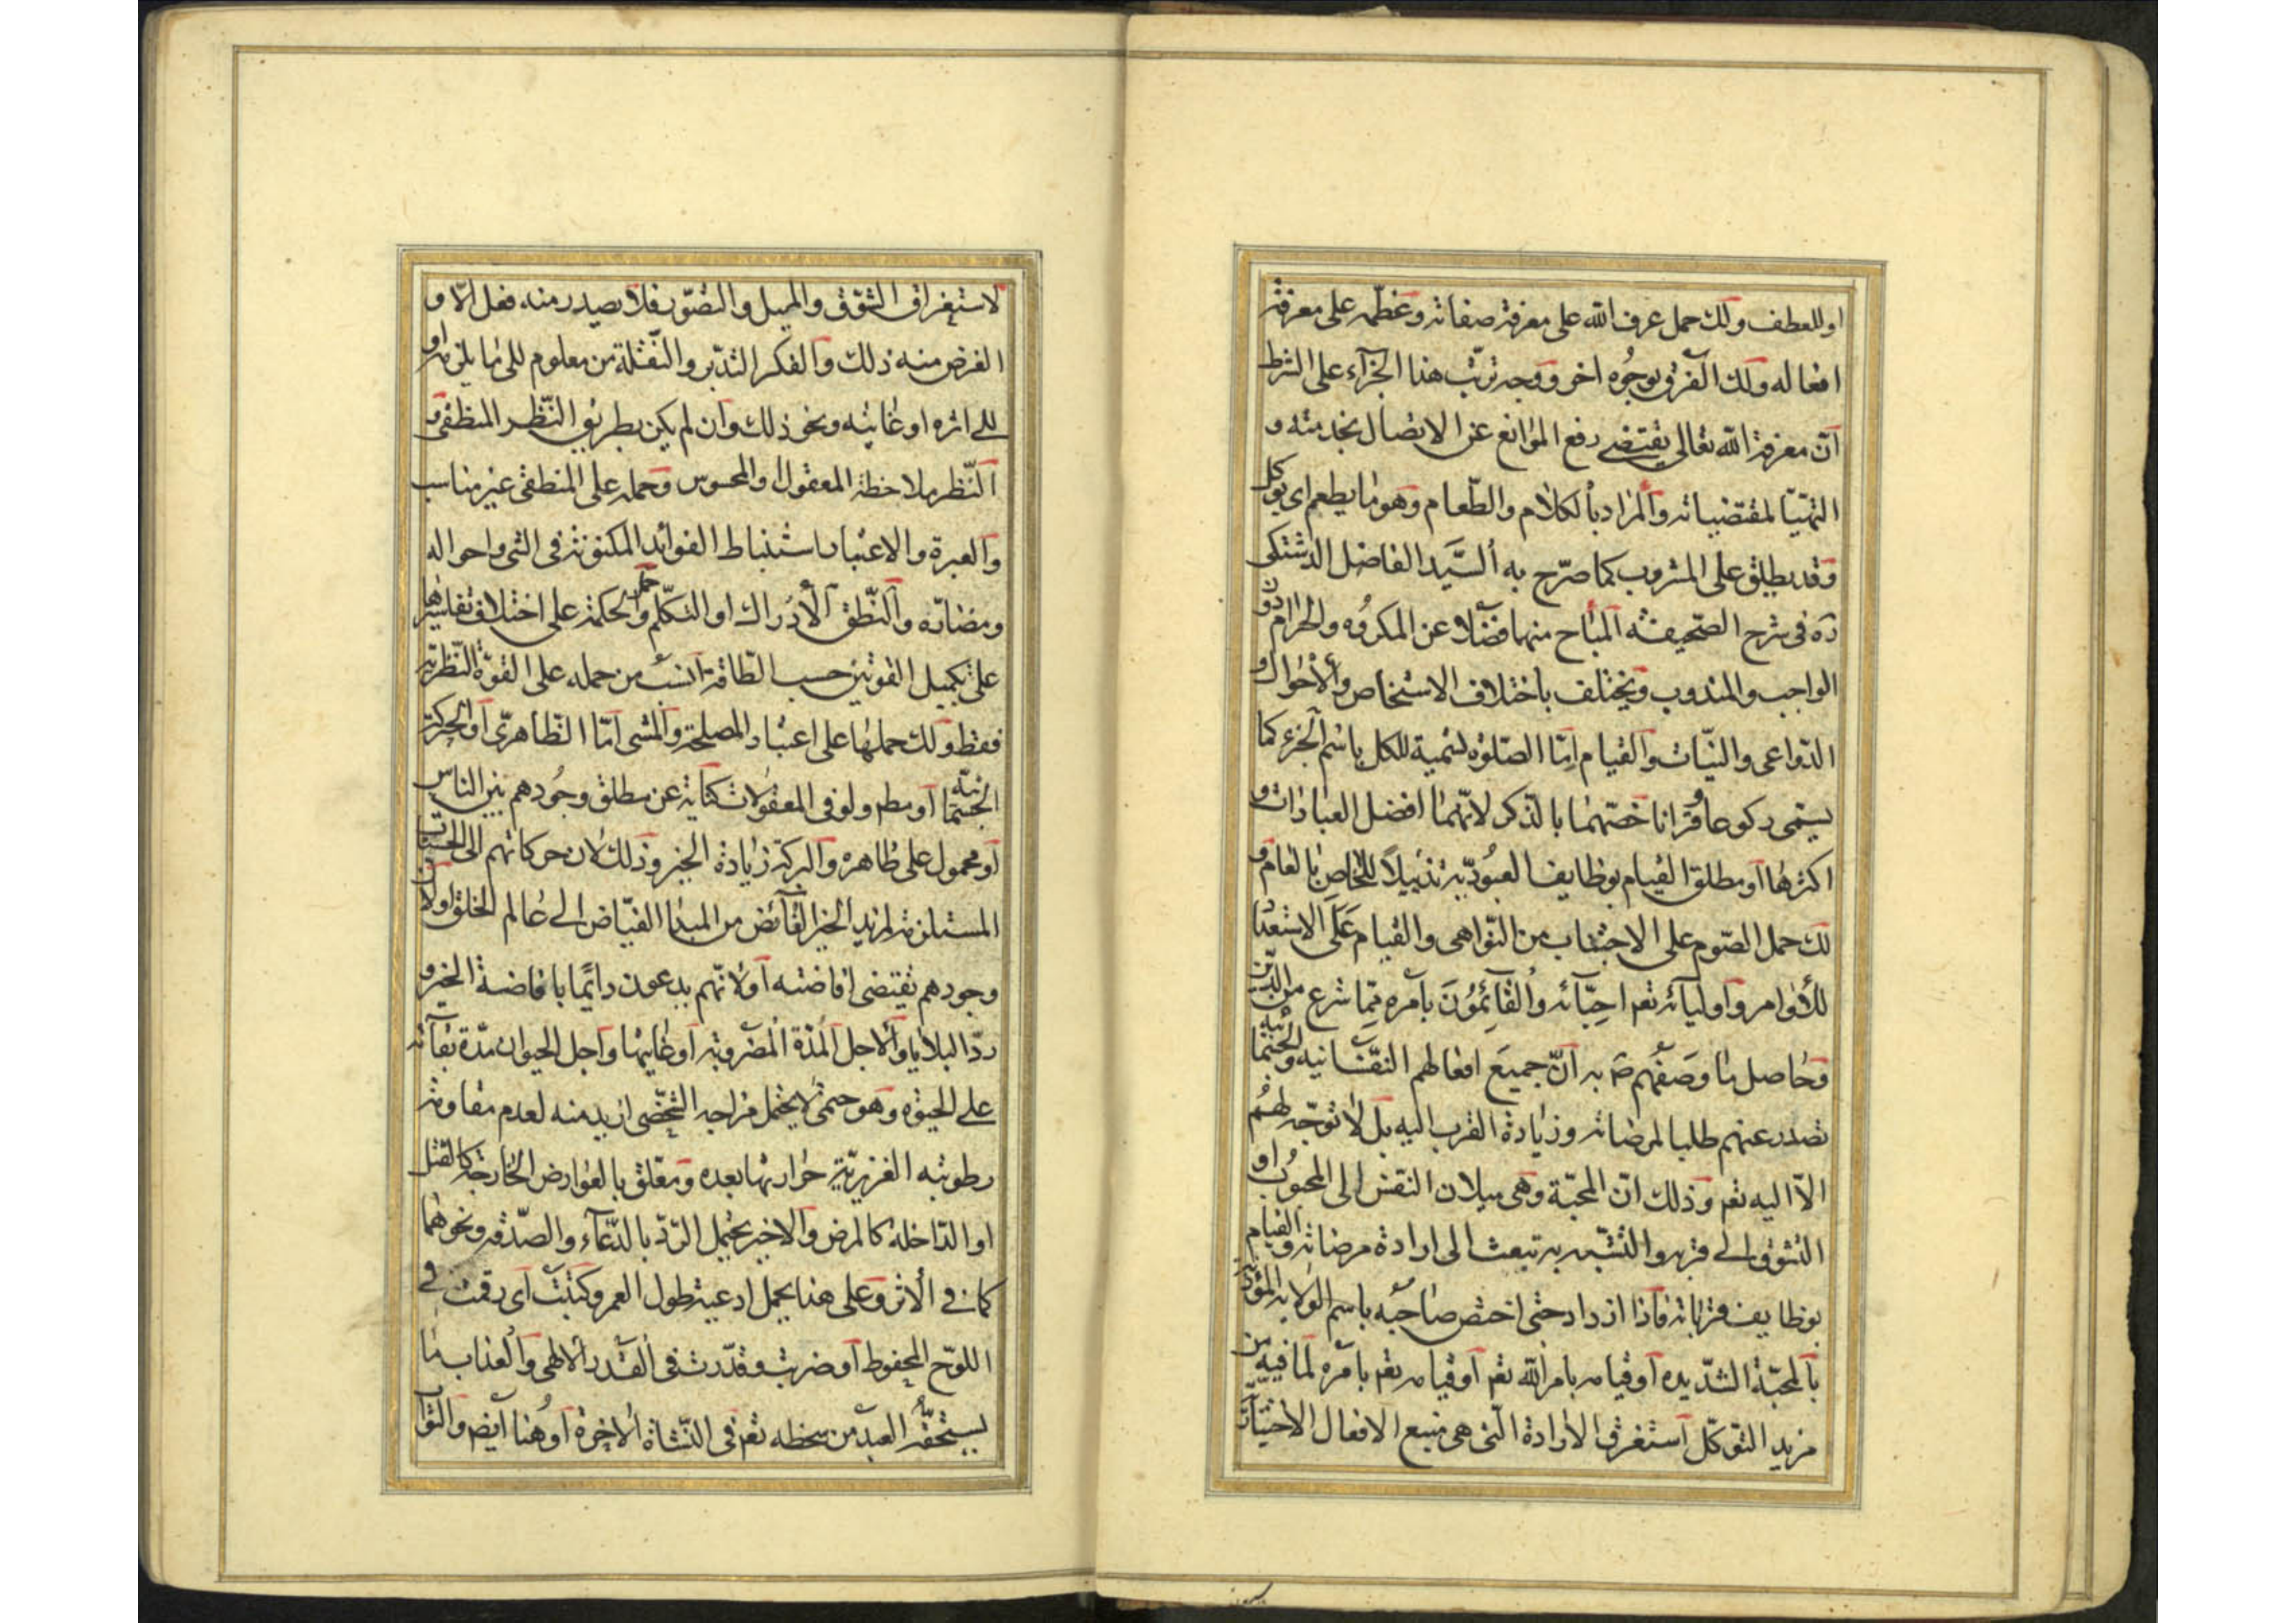 او للعطف ولك حمل عرف الله على معرفة صفاته وعظمه على معرفة
افعاله ولك الفرق بوجوه اخر ووجه ترتب هذا الجزآء على الشرط
ان معرفة الله تعالى يقتضى رفع الموانع عن الاتصال بخدمته و
التهيّا لمقتضياته والمراد بالكلام والطّعام وهو ما يطعم اى يوكل
وقد يطلق على المشروب كما صرّح به السيّد الفاضل الدشتكى
ره فى شرح الصّحيفه المباح منهما فضلا عن المكروه والحرام دون
الواجب والمندوب ويختلف باختلاف الاشخاص والاحوال و
الدّواعى والنيّات والقيام امّا الصّلوة تسمية للكل باسم الجزء كما
يسمّى ركوعا وقرانا خصّهما بالذكر لانّهما افضل العبادات و
اكثرها او مطلق القيام بوظايف العبوديّة تذييلاً للخاص بالعام و
لك حمل الصّوم على الاجتناب من النّواهى والقيام عَلَى الاستعداد
للأوامر واوليائه تعم احبّائه والقَآئِمُونَ بامره ممّا شرع من الدّين
وحاصل ما وصفهم ص به انّ جميعَ افعالهم النفسانيه والجسمانية
تصدر عنهم طلبا لمرضاته وزيادة القرب اليه بل لا توجّه لهم
الّا اليه تعم وذلك انّ المحبّة وهى ميلان النفس الى المحبوب او
التشوق الى قربه والتشبه به تبعث الى ارادة مرضاته والقيام
بوظايف قرباته فاذا ازداد حتى اختص صاحبه باسم الولاية المؤدّية
بالمحبّة الشّديده او قيامه بامر الله تعم او قيامه تعم بامره لما فيه من
مزيد التوكّل استغرق الارادة الّتى هى منبع الافعال الاختياريّة
لاستغراق الشوق والميل والتصوّر فلا يصدر منه فعل الّا و
الغرض منه ذلك والفكر التدبر والنّقلة من معلوم الى ما يلزمه او
الى اثره او غايته ونحو ذلك وان لم يكن بطريق النّظر المنطقى و
النّظر ملاحظة المعقول والمحسوس وحمله على المنطقى غير مناسب
والعبرة والاعتبار استنباط الفوائد المكنونة فى الشى واحواله
ومضارّه والنّطق الأدراك او التكلّم وحمل الحكمة على اختلاف تفاسيرها
على تكميل القوتين حسب الطّاقة انسب من حمله على القوّة النّظريّة
فقط ولك حملها على اعتبار المصلحة والمشى امّا الظّاهرىّ او الحركة
الجسمانيّة او مطم ولو فى المعقولات كناية عن مطلق وجُودهم بين الناس
او محمول على ظاهره والبركة زيادة الخير وذلك لان حركاتهم الى
المستلزمة لمزيد الخير الفآئض من المبدا الفيّاض الى عالم الخلق اولان
وجودهم يقتضى افاضته او لانّهم يدعون دايمًا بافاضة الخير و
ردّ البلايا والاجل المدّة المضروبة او غايتها واجل الحيوان مدّة بقآئه
على الحيوة وهو حتمى لا يحتمل مزاجه الشخصى ازيد منه لعدم مقاومة
رطوبته الغزيزيّة حرارتها بعده ومعلق بالعوارض الخارجة كالقتل
او الدّاخلة كالمرض والاخير يحتمل الردّ بالدّعآء والصّدقة ونحوهما
كما فى الاثر وعلى هذا يحمل ادعية طول العمر وكتبت اى رقمت فى
اللوح المحفوظ او ضربت وقدّرت فى القدر الالهى والعذاب ما
يستحقّه العبد من سخطه تعم فى النّشاة الاخرة او هنا ايضم والثوا